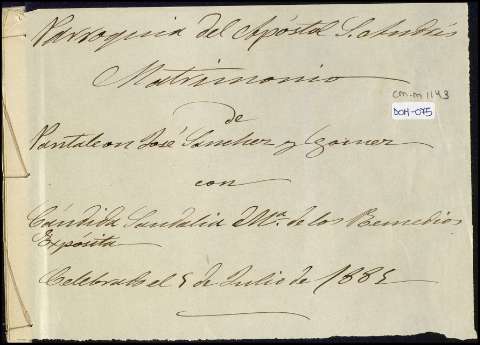 Parroquia del Apóstol S. Andrés
Matrimonio
CM-M 1143
DOH-075
de
Pantaleon José Sanchez y Gomez
con
Cándida Sandalia Mª. de los Remedios
Expósita
Celebrado el 5 de Julio de 1885